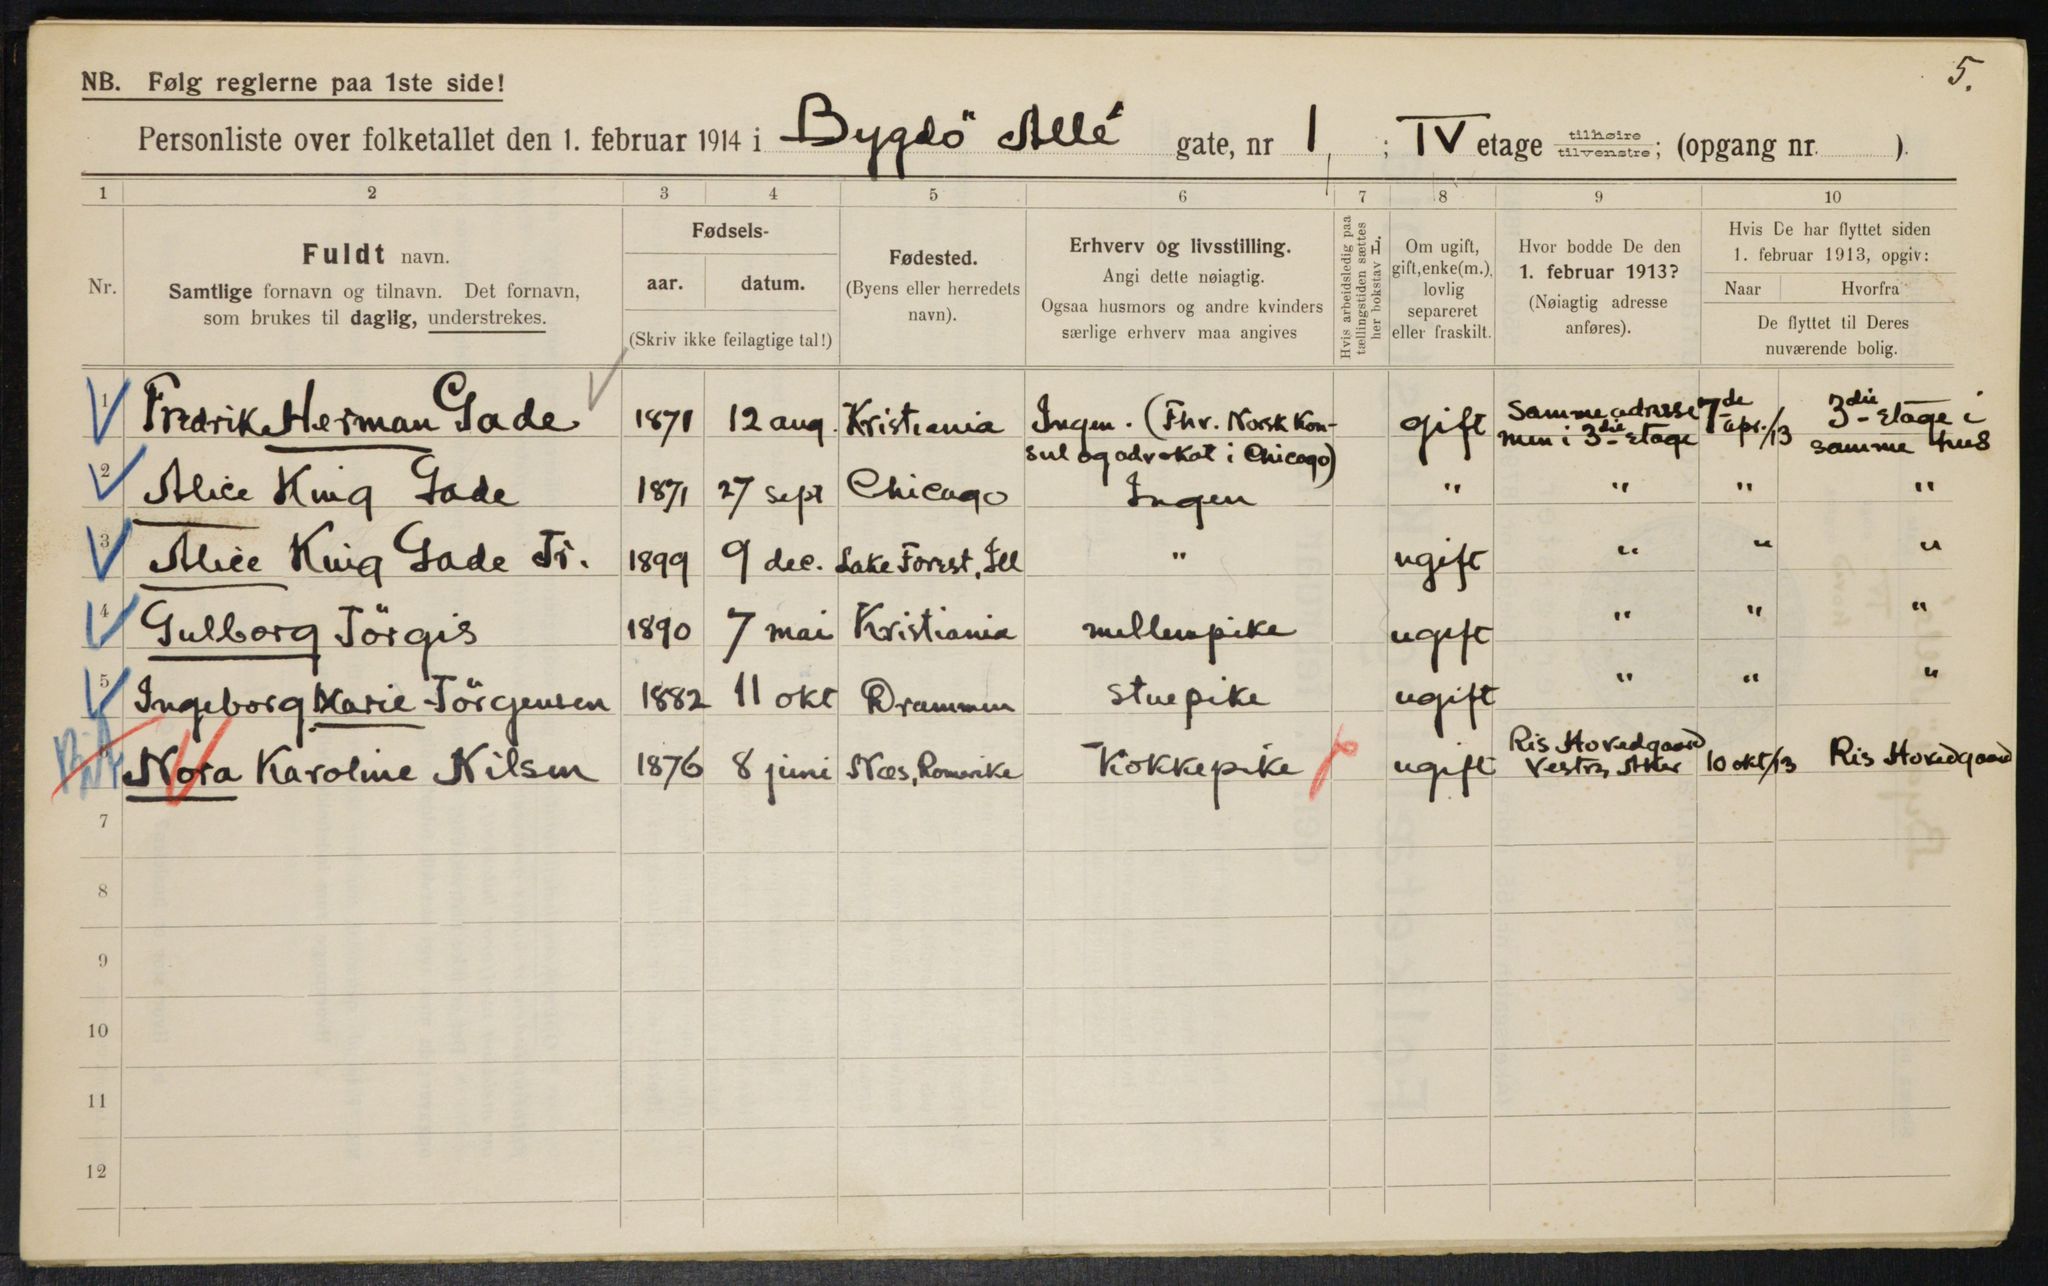 5.
NB. Følg reglerne paa 1ste side!
Personliste over folketallet den 1. februar 1914 i Bygdö Allé gate, nr 1, ; IV etage tilhøire tilvenstre; (opgang nr. ).
1 2 3 4 5 6 7 8 9 10
Nr.
Fuldt navn.
Samtlige fornavn og tilnavn. Det fornavn,
som brukes til daglig, understrekes.
Fødsels-
aar. datum.
(Skriv ikke feilagtige tal!)
Fødested.
(Byens eller herredets
navn).
Erhverv og livsstilling.
Angi dette nøiagtig.
Ogsaa husmors og andre kvinders
særlige erhverv maa angives
Hvis arbeidsledig paa
tællingstiden sættes
her bokstav L.
Om ugift,
gift, enke(m.),
lovlig
separeret
eller fraskilt.
Hvor bodde De den
1. februar 1913?
(Nøiagtig adresse
anføres).
Hvis De har flyttet siden
1. februar 1913, opgiv:
Naar Hvorfra
De flyttet til Deres
nuværende bolig.
1 Fredrik Herman Gade 1871 12 aug. Kristiania Ingen. (Fhv. Norsk Kon- gift samme adresse 7de 3die etage i
sul og advokat i Chicago) men i 3die etage apr./13 samme hus
2 Alice King Gade 1871 27 sept Chicago Ingen " " " "
3 Alice King Gade Jr. 1899 9 dec. Lake Forest, Ill " ugift " " "
4 Gulborg Jörgis 1890 7 mai Kristiania mellempike ugift " " "
5 Ingeborg Marie Jörgensen 1882 11 okt Drammen stuepike ugift " " "
6 Nora Karoline Nilsen 1876 8 juni Næs, Romerike Kokkepike ugift Ris Hovedgaard 10 okt/13 Ris Hovedgaard
Vestre Aker
7
8
9
10
11
12